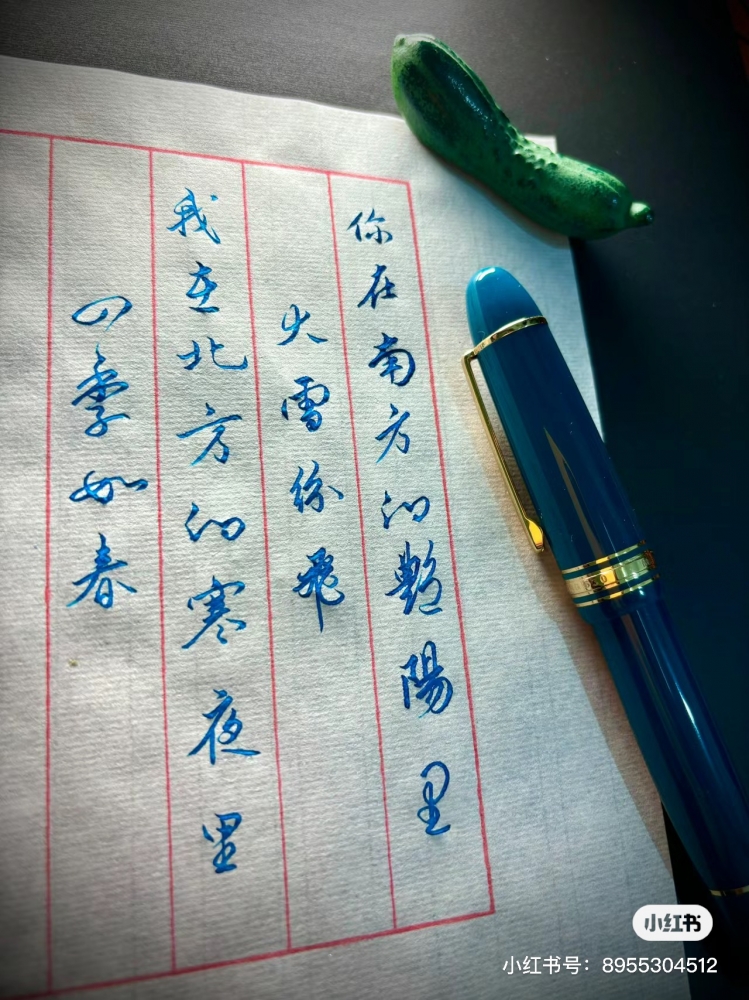 你在南方的艷陽里
大雪纷飛
我在北方的寒夜里
四季如春
小红书
小红书号：8955304512